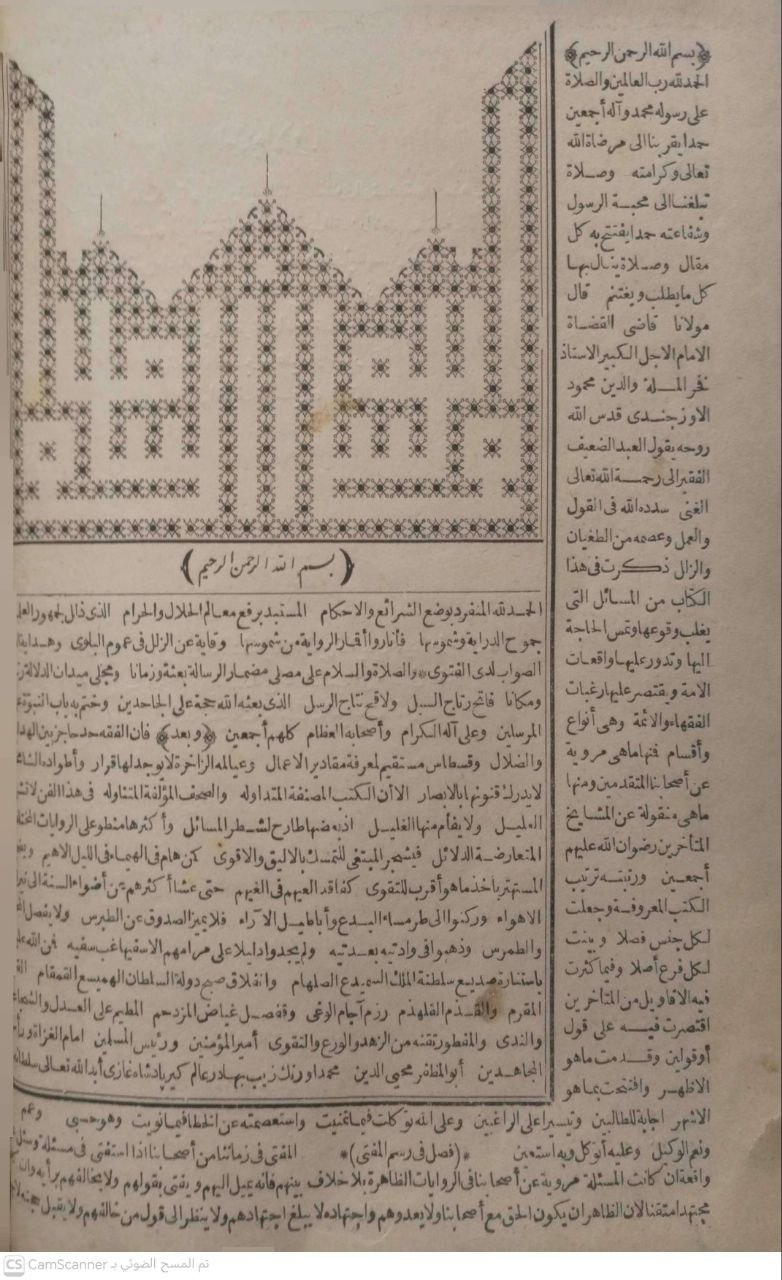 ﴿بسم الله الرحمن الرحيم﴾
الحمد لله رب العالمين والصلاة
على رسوله محمد وآله أجمعين
حمدا يقربنا الى مرضاة الله
تعالى وكرامته وصلاة
تبلغنا الى محبة الرسول
وشفاعته حمدا يفتتح به كل
مقال وصلاة ينال بها
كل ما يطلب ويغتنم قال
مولانا قاضى القضاة
الامام الاجل الكبير الاستاذ
فخر الملة والدين محمود
الاوزجندى قدس الله
روحه يقول العبد الضعيف
الفقير الى رحمة الله تعالى
الغنى سدده الله فى القول
والعمل وعصمه من الطغيان
والزلل ذكرت فى هذا
الكتاب من المسائل التى
يغلب وقوعها وتمس الحاجة
اليها وتدور عليها واقعات
الامة ويقتصر عليها رغبات
الفقهاء والائمة وهى أنواع
وأقسام فمنها ماهى مروية
عن أصحابنا المتقدمين ومنها
ماهى منقولة عن المشايخ
المتأخرين رضوان الله عليهم
أجمعين ورتبته ترتيب
الكتب المعروفة وجعلت
لكل جنس فصلا وبينت
لكل فرع أصلا وفيما كثرت
فيه الاقاويل من المتأخرين
اقتصرت فيه على قول
أوقولين وقدمت ماهو
الاظهر وافتتحت بماهو
﴿بسم الله الرحمن الرحيم﴾
الحمد لله المنفرد بوضع الشرائع والاحكام المستبد برفع معالم الحلال والحرام الذى ذلل لجمهور
جموح الدراية وشموسها فأنار وا أقمار الرواية من شموسها وقاية عن الزلل فى عموم البلوى
الصواب لدى الفتوى والصلاة والسلام على مصلى مضمار الرسالة بعثة وزمانا ومجلى ميدان الدلالة
ومكانا فاتح رتاج السبل ولاقح نتاج الرسل الذى بعثه الله حجة على الجاحدين وختم به باب النبوة
المرسلين وعلى آله الكرام وأصحابه العظام كلهم أجمعين ﴿وبعد﴾ فان الفقه حد حاجز بين
والضلال وقسطاس مستقيم لمعرفة مقادير الاعمال وعيالمه الزاخرة لا يوجد لها قرار وأطواده
لا يدرك قنونها بالابصار الا أن الكتب المصنفة المتداوله والصحف المؤلفة المتناوله فى هذا الفن
العليل ولا يفأم منها الغليل اذ بعضها طارح لشطر المسائل وأكثرها منطو على الروايات
المتعارضة الدلائل فيشجر المبتغى للتمسك بالاليق والاقوى كمن هام فى الهيماء فى الليل الاهيم
المستهتر باخذ ماهو أقرب للتقوى كفاقد العيهم فى الغيهم حتى عشا أكثرهم عن أضواء السنة الى
الاهواء وركنوا الى طرمساء البدع وأباطيل الآراء فلا يميز الصدوق عن الطبرس ولا يفصل
والطمرس وذهبوا فى وادتيه بعد تيه ولم يجدوا دليلا على مرامهم الا سفيها غب سفيه فمن الله
باستنارة صديع سلطنة الملك السميدع الصلهام وانفلاق صبح دولة السلطان الهميسع القمقام
المقرم والقذم القلهذم رزم آجام الوغى وقفصل غياض المزدحم المطيم على العدل
والندى والمفطور تقنه من الزهد والورع والتقوى أمير المؤمنين ورئيس المسلمين امام الغزاة
المجاهدين أبو المظفر محيى الدين محمد اورنك زيب بهادر عالمكير پادشاه غازى أبد الله تعالى
الاشهر اجابة للطالبين وتيسيرا على الراغبين وعلى الله توكلت فيما تمنيت واستعصمته عن الخطا فيما نويت وهو حسبى
ونعم الوكيل وعليه أتوكل وبه استعين *(فصل فى رسم المفتى)* المفتى فى زماننا من أصحابنا اذا استفتى فى مسئلة
واقعة ان كانت المسئلة مروية عن أصحابنا فى الروايات الظاهرة بلا خلاف بينهم فانه يميل اليهم ويفتى بقولهم ولا يخالفهم برأيه
مجتهدا متقنا لان الظاهر ان يكون الحق مع أصحابنا ولا يعدوهم واجتهاده لا يبلغ اجتهادهم ولا ينظر الى قول من خالفهم ولا يقبل
تم المسح الضوئي بـ CamScanner
CS